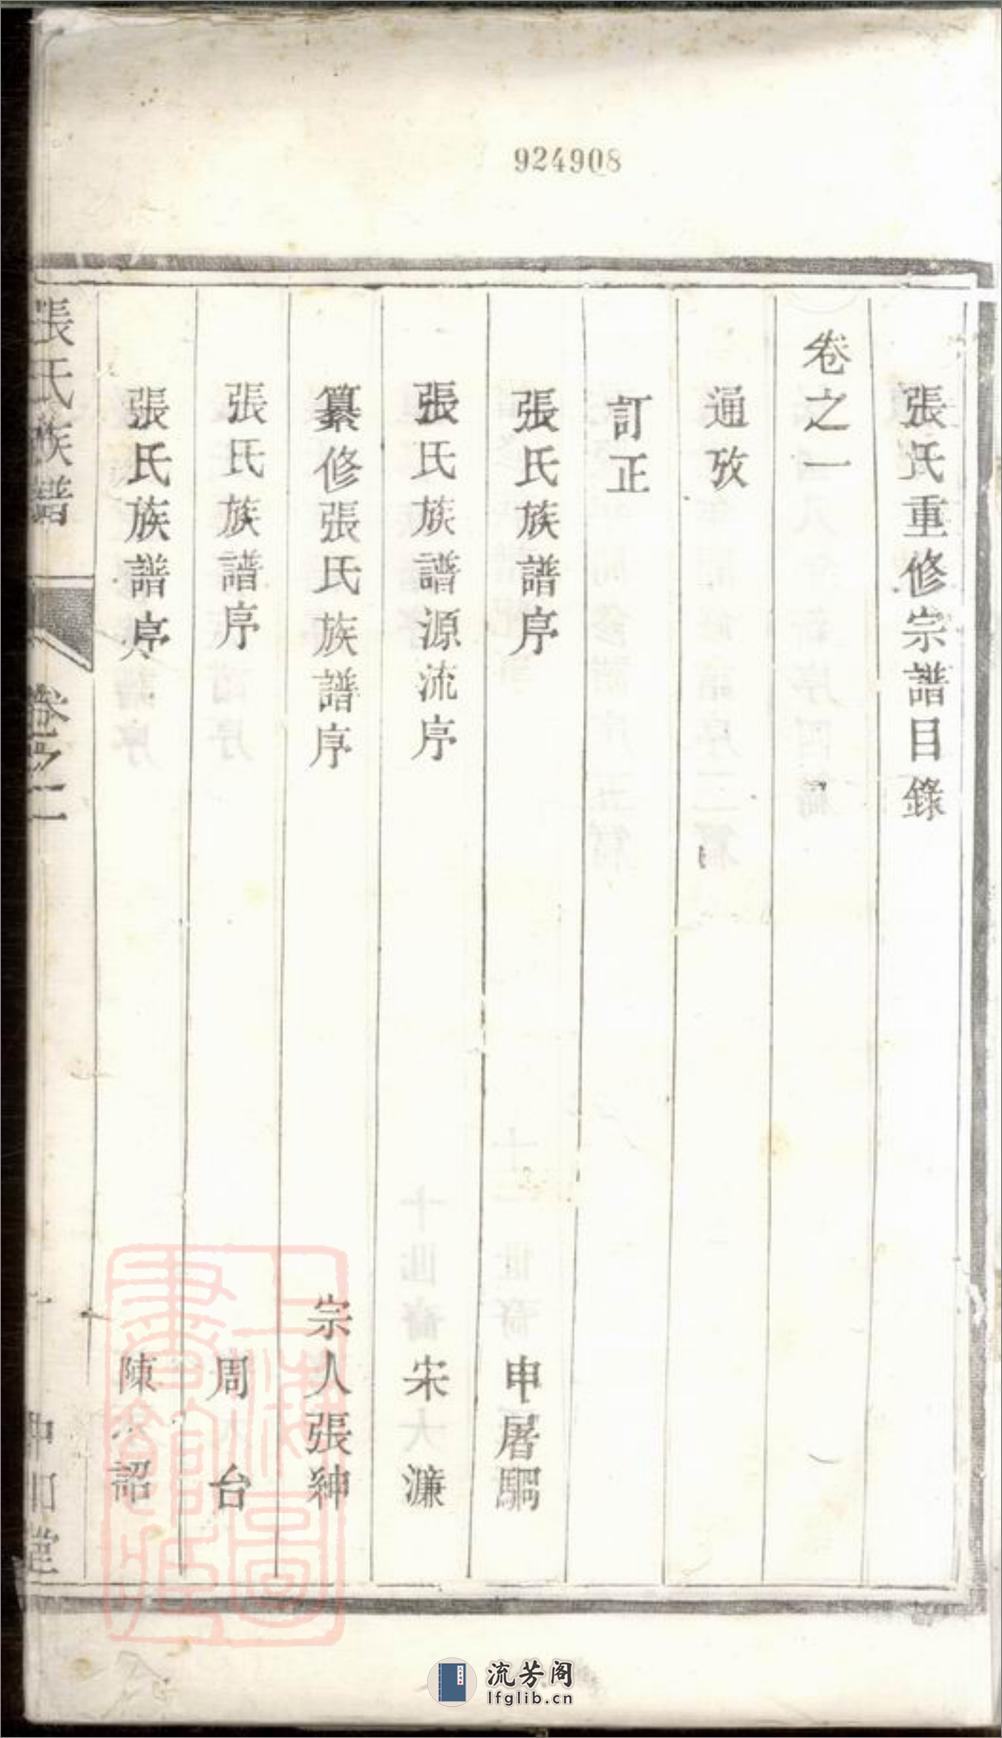 924908
張氏重修宗譜目錄
卷之一
通攷
訂正
張氏族譜序 申屠駉
張氏族譜源流序 宋濂
纂修張氏族譜序 宗人張紳
張氏族譜序 周台
張氏族譜序 陳 詔
張氏族譜 卷之一 一 中和堂
上海圖書館藏
流芳阁
lfglib.cn